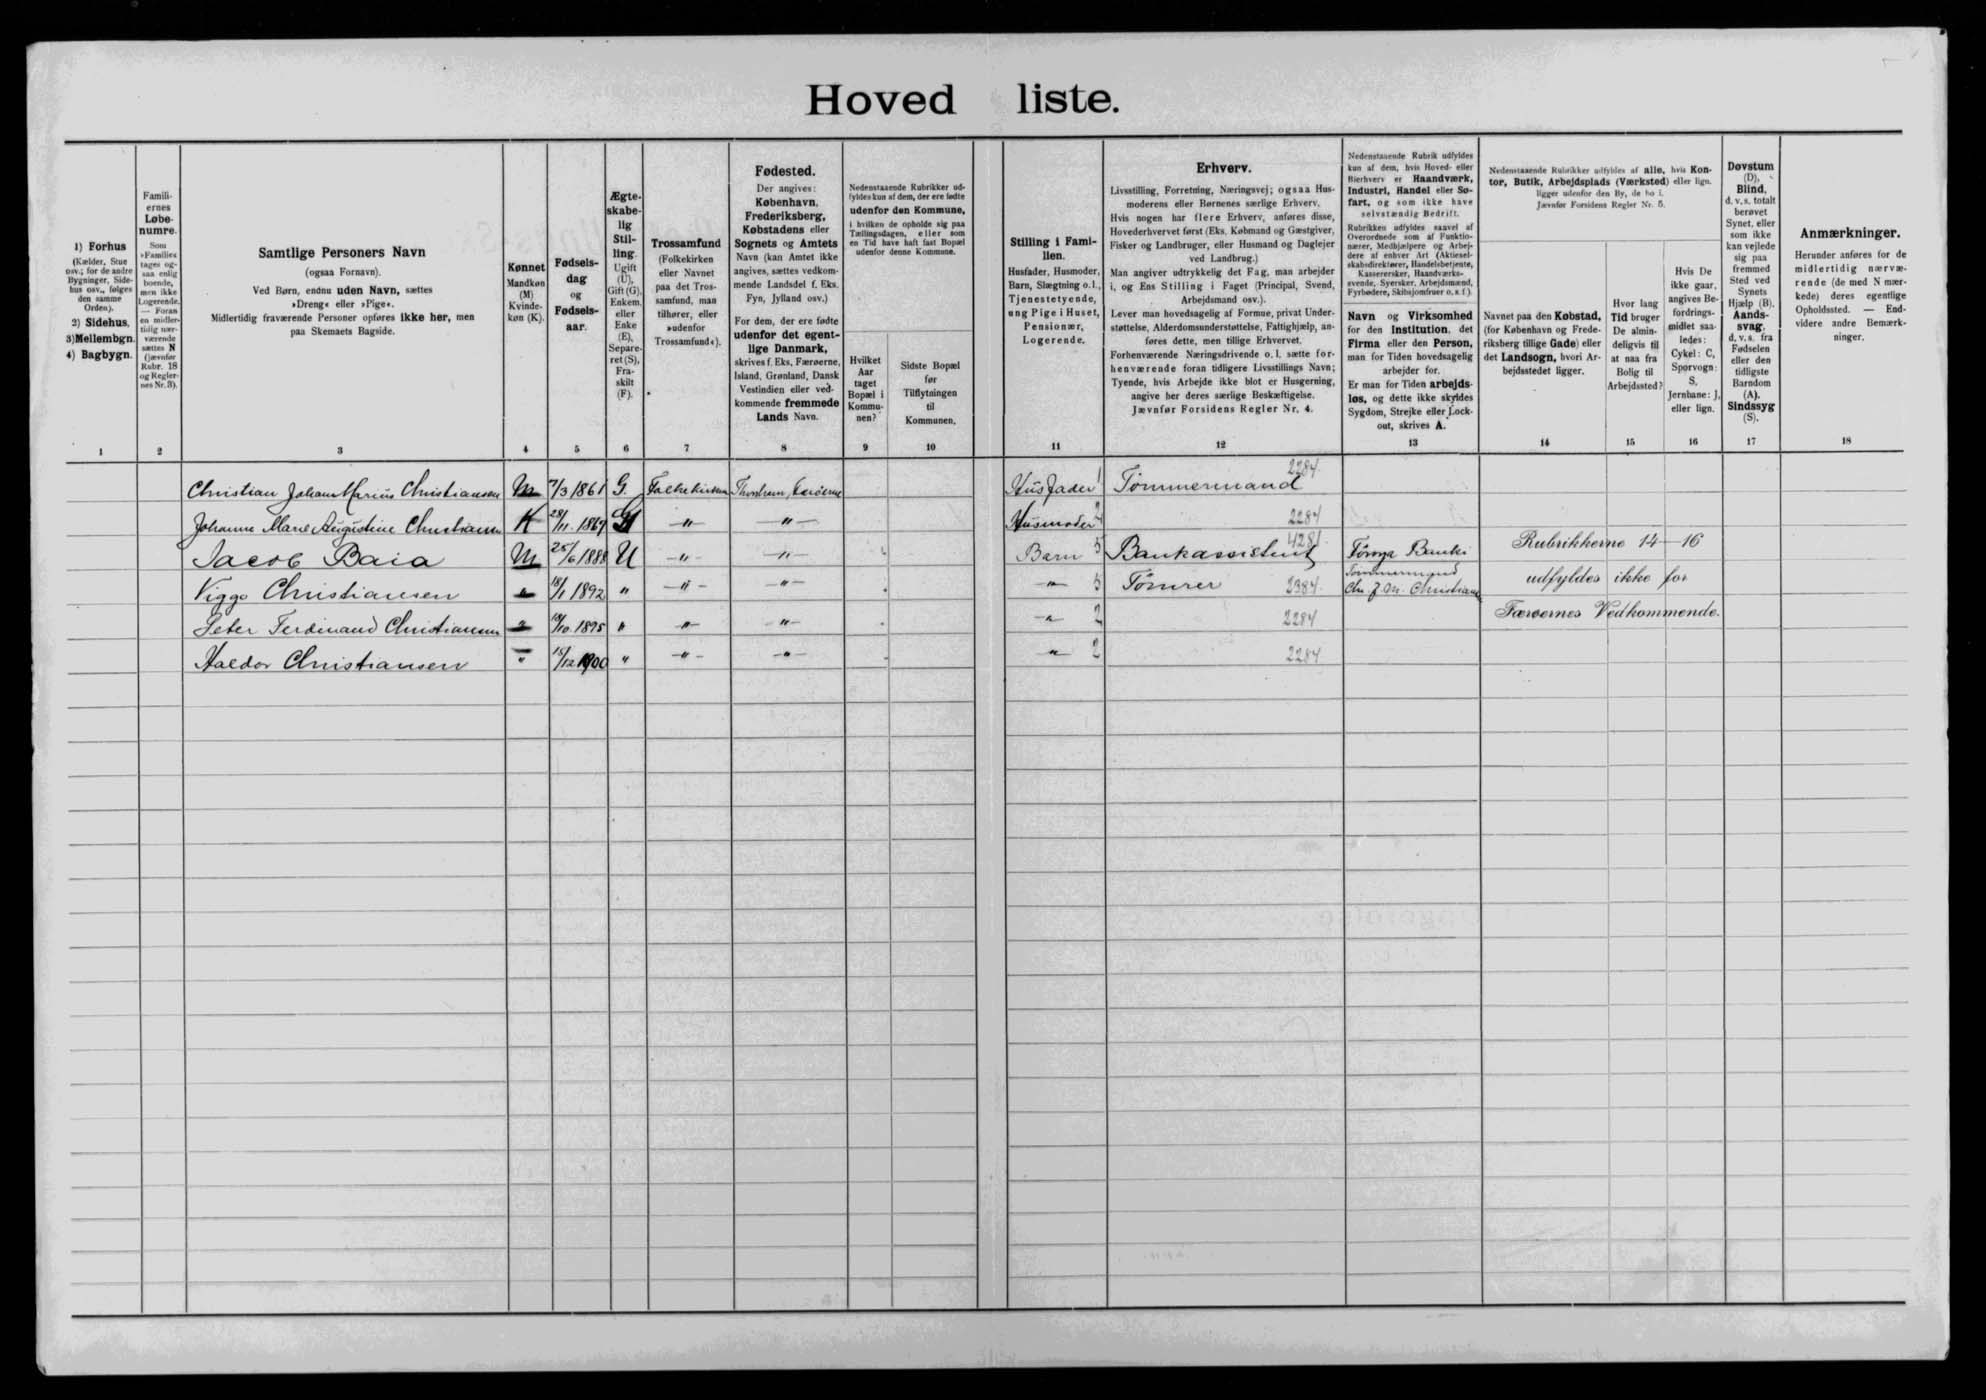 Hoved liste.
1) Forhus
(Kælder, Stue
osv.; for de andre
Bygninger, Side-
hus osv., følges
den samme
Orden).
2) Sidehus,
3) Mellembgn.
4) Bagbygn.
1
Famili-
ernes
Løbe-
numre.
Som
»Familie«
tages og-
saa enlig
boende,
men ikke
Logerende.
— Foran
en midler-
tidig nær-
værende
sættes N
(jævnfør
Rubr. 18
og Regler-
nes Nr. 3).
2
Samtlige Personers Navn
(ogsaa Fornavn).
Ved Børn, endnu uden Navn, sættes
»Dreng« eller »Pige«.
Midlertidig fraværende Personer opføres ikke her, men
paa Skemaets Bagside.
3
Kønnet
Mandkøn
(M)
Kvinde-
køn (K).
4
Fødsels-
dag
og
Fødsels-
aar.
5
Ægte-
skabe-
lig
Stil-
ling.
Ugift
(U),
Gift (G),
Enkem.
eller
Enke
(E),
Separe-
ret (S),
Fra-
skilt
(F).
6
Trossamfund
(Folkekirken
eller Navnet
paa det Tros-
samfund, man
tilhører, eller
»udenfor
Trossamfund«).
7
Fødested.
Der angives:
København,
Frederiksberg,
Købstadens eller
Sognets og Amtets
Navn (kan Amtet ikke
angives, sættes vedkom-
mende Landsdel f. Eks.
Fyn, Jylland osv.)
For dem, der ere fødte
udenfor det egent-
lige Danmark,
skrives f. Eks. Færøerne,
Island, Grønland, Dansk
Vestindien eller ved-
kommende fremmede
Lands Navn.
8
Nedenstaaende Rubrikker ud-
fyldes kun af dem, der ere fødte
udenfor den Kommune,
i hvilken de opholde sig paa
Tællingsdagen, eller som
en Tid have haft fast Bopæl
udenfor denne Kommune.
Hvilket
Aar
taget
Bopæl i
Kommu-
nen?
9
Sidste Bopæl
før
Tilflytningen
til
Kommunen.
10
Stilling i Fami-
lien.
Husfader, Husmoder,
Barn, Slægtning o. l.,
Tjenestetyende,
ung Pige i Huset,
Pensionær,
Logerende.
11
Erhverv.
Livsstilling, Forretning, Næringsvej; ogsaa Hus-
moderens eller Børnenes særlige Erhverv.
Hvis nogen har flere Erhverv, anføres disse,
Hovederhvervet først (Eks. Købmand og Gæstgiver,
Fisker og Landbruger, eller Husmand og Daglejer
ved Landbrug.)
Man angiver udtrykkelig det Fag, man arbejder
i, og Ens Stilling i Faget (Principal, Svend,
Arbejdsmand osv.).
Lever man hovedsagelig af Formue, privat Under-
støttelse, Alderdomsunderstøttelse, Fattighjælp, an-
føres dette, men tillige Erhvervet.
Forhenværende Næringsdrivende o. l. sætte for-
henværende foran tidligere Livsstillings Navn;
Tyende, hvis Arbejde ikke blot er Husgerning,
angive her deres særlige Beskæftigelse.
Jævnfør Forsidens Regler Nr. 4.
12
Nedenstaaende Rubrik udfyldes
kun af dem, hvis Hoved- eller
Bierhverv er Haandværk,
Industri, Handel eller Sø-
fart, og som ikke have
selvstændig Bedrift.
Rubrikken udfyldes saavel af
Overordnede som af Funktio-
nærer, Medhjælpere og Arbej-
dere af enhver Art (Aktiesel-
skabsdirektører, Handelsbetjente,
Kassererske r, Haandværks-
svende, Syersker, Arbejdsmænd,
Fyrbødere, Skibsjomfruer o. s. f.).
Navn og Virksomhed
for den Institution, det
Firma eller den Person,
man for Tiden hovedsagelig
arbejder for.
Er man for Tiden arbejds-
løs, og dette ikke skyldes
Sygdom, Strejke eller Lock-
out, skrives A.
13
Nedenstaaende Rubrikker udfyldes af alle, hvis Kon-
tor, Butik, Arbejdsplads (Værksted) eller lign.
ligger udenfor den By, de bo i.
Jævnfør Forsidens Regler Nr. 5.
Navnet paa den Købstad,
(for København og Frede-
riksberg tillige Gade) eller
det Landsogn, hvori Ar-
bejdsstedet ligger.
14
Hvor lang
Tid bruger
De almin-
deligvis til
at naa fra
Bolig til
Arbejdssted?
15
Hvis De
ikke gaar,
angives Be-
fordrings-
midlet saa-
ledes:
Cykel: C,
Sporvogn:
S,
Jernbane: J,
eller lign.
16
Døvstum
(D),
Blind,
d. v. s. totalt
berøvet
Synet, eller
som ikke
kan vejlede
sig paa
fremmed
Sted ved
Synets
Hjælp (B).
Aands-
svag,
d. v. s. fra
Fødselen
eller den
tidligste
Barndom
(A).
Sindssyg
(S).
17
Anmærkninger.
Herunder anføres for de
midlertidig nærvæ-
rende (de med N mær-
kede) deres egentlige
Opholdssted. — End-
videre andre Bemærk-
ninger.
18
Christian Johan Marius Christiansen M 7/3 1861 G. Folkekirken Thorshavn, Færöerne Husfader 1 Tömmermand 2284
Johanne Marie Augustine Christiansen K 28/11 1867 G " " Husmoder 2 2284
Jacob Baia M 25/6 1888 U " " Barn 5 Bankassistent 4281 Föroya Banki Rubrikkerne 14-16
Viggo Christiansen " 18/1 1892 " " " " 5 Tömrer 2384 Tömmermand Chr. J. M. Christiansen udfyldes ikke for
Peter Ferdinand Christiansen " 18/10 1895 " " " " 2 2284 Færøernes Vedkommende.
Haldor Christiansen " 15/12 1900 " " " " 2 2284